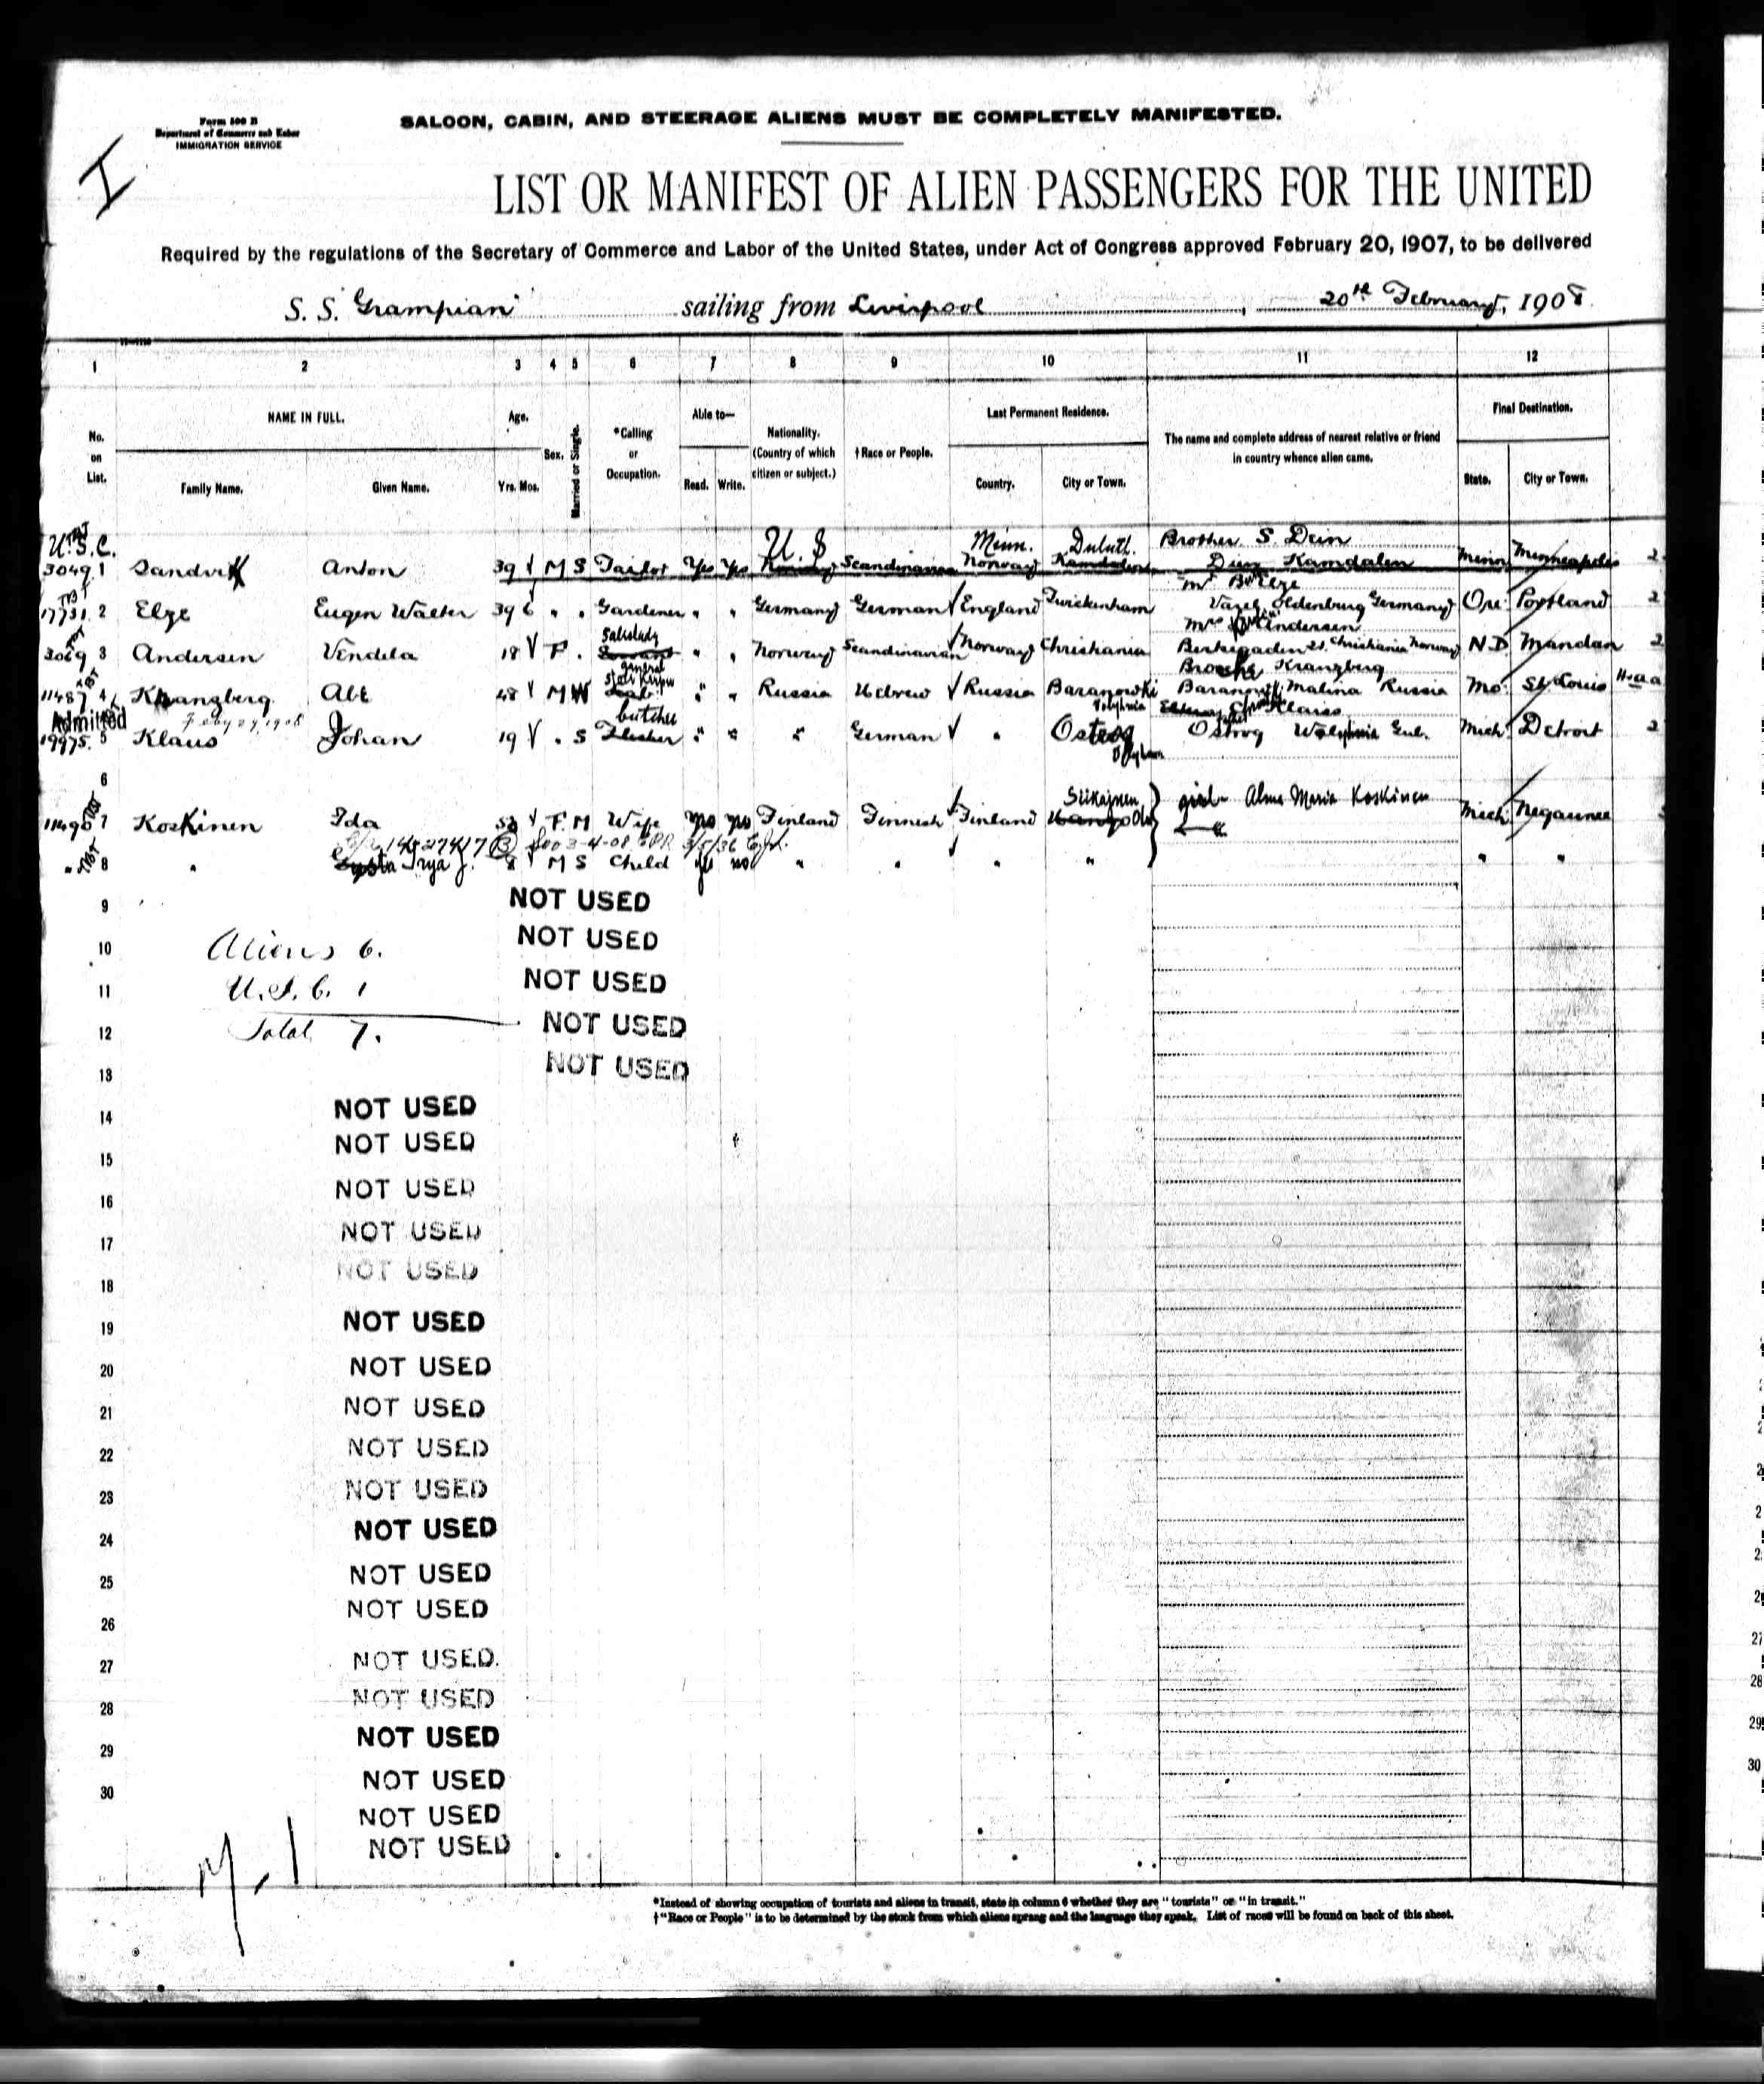 Form 500 B
Department of Commerce and Labor
IMMIGRATION SERVICE
I
SALOON, CABIN, AND STEERAGE ALIENS MUST BE COMPLETELY MANIFESTED.
LIST OR MANIFEST OF ALIEN PASSENGERS FOR THE UNITED
Required by the regulations of the Secretary of Commerce and Labor of the United States, under Act of Congress approved February 20, 1907, to be delivered
S. S. "Grampian" sailing from Liverpool, 20th February, 1908
1 2 3 4 5 6 7 8 9 10 11 12
No. on List.
NAME IN FULL.
Family Name. Given Name.
Age.
Yrs. Mos.
Sex.
Married or Single.
*Calling or Occupation.
Able to—
Read. Write.
Nationality. (Country of which citizen or subject.)
†Race or People.
Last Permanent Residence.
Country. City or Town.
The name and complete address of nearest relative or friend in country whence alien came.
Final Destination.
State. City or Town.
U.S.C. U.S Minn. Duluth. Brother S. Dein
30491 Sandvik Anton 39 M S Tailor Yes Yes Norway Scandinavian Norway Kamdalen Kamdalen Minn Minneapolis 2
17731. 2 Elze Eugen Walter 39 6 " " Gardener " " Germany German England Twickenham Oldenburg Germany Ore. Portland 2
3069 3 Andersen Vendela 18 F. Saleslady " " Norway Scandinavian Norway Christiania Mrs Andersen Christiania Norway N.D. Mandan 2
11487 4 Kranzberg Abt 48 M W general " " Russia Hebrew Russia Baranowski Kranzberg Malina Russia Mo. St Louis
Admitted Feby 29, 1908
19975. 5 Klaus Johan 19 . S butcher Flesher " " " German " Ostrog Klaiss Ostrog Gub. Mich. Detroit 2
6
11490 7 Koskinen Ida F. M Wife yes yes Finland Finnish Finland girl Alma Maria Koskinen Mich Negaunee
" 8 " Irja J. 8 M S Child no " " " " " "
9 NOT USED
10 Aliens 6. NOT USED
11 U.S.C. 1 NOT USED
12 Total 7. NOT USED
13 NOT USED
14 NOT USED
15 NOT USED
16 NOT USED
17 NOT USED
18 NOT USED
19 NOT USED
20 NOT USED
21 NOT USED
22 NOT USED
23 NOT USED
24 NOT USED
25 NOT USED
26 NOT USED
27 NOT USED.
28 NOT USED
29 NOT USED
30 NOT USED
NOT USED
NOT USED
*Instead of showing occupation of tourists and aliens in transit, state in column 6 whether they are "tourists" or "in transit."
†"Race or People" is to be determined by the stock from which aliens sprang and the language they speak. List of races will be found on back of this sheet.